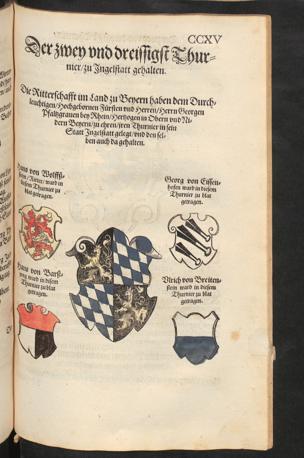 CCXV
Der zwey vnd dreissigst Thur-
nier/ zu Ingelstatt gehalten.
Die Ritterschafft im Land zu Beyern haben dem Durch-
leuchtigen/ Hochgebornen Fürsten vnd Herren/ Herrn Georgen
Pfaltzgrauen bey Rhein/ Hertzogen in Obern vnd Ni-
dern Beyern/ zu ehren/ iren Thurnier in sein
Statt Ingelstatt gelegt/ vnd den sel-
ben auch da gehalten.
Hans von Wolffs-
Ritter/ ward in
disem Thurnier zu
blat getragen.
Georg von
hofen ward in disem
Thurnier zu blat
getragen.
Hans von
ward in disem
Thurnier zu blat
getragen.
Vlrich von Breiten-
stein ward in disem
Thurnier zu blat
getragen.